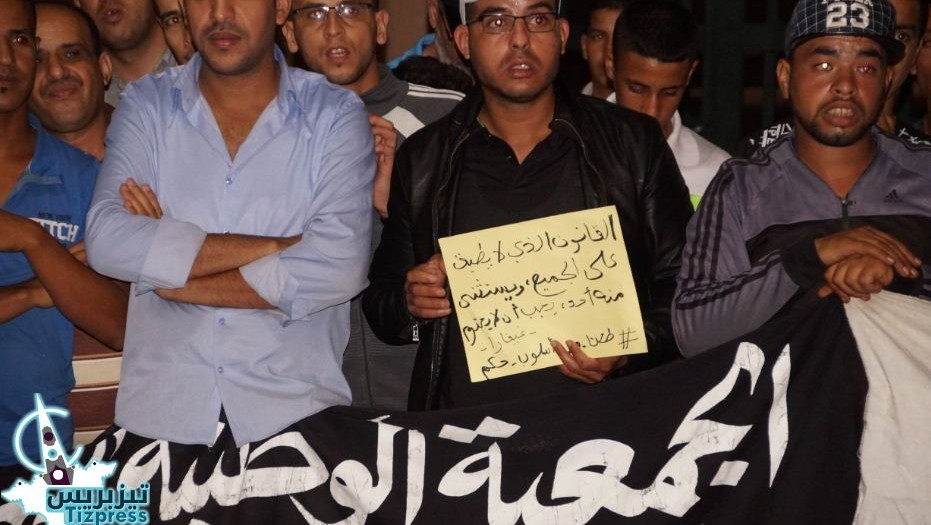 23
القانون الذي لا يطبق
على الجميع، ويستثنى
منه أحد، يجب أن لا يحترم
#طحنـ مو أسلوب حكم
الجمعية الوطنية
adidas
تيزبريس
Tizpress